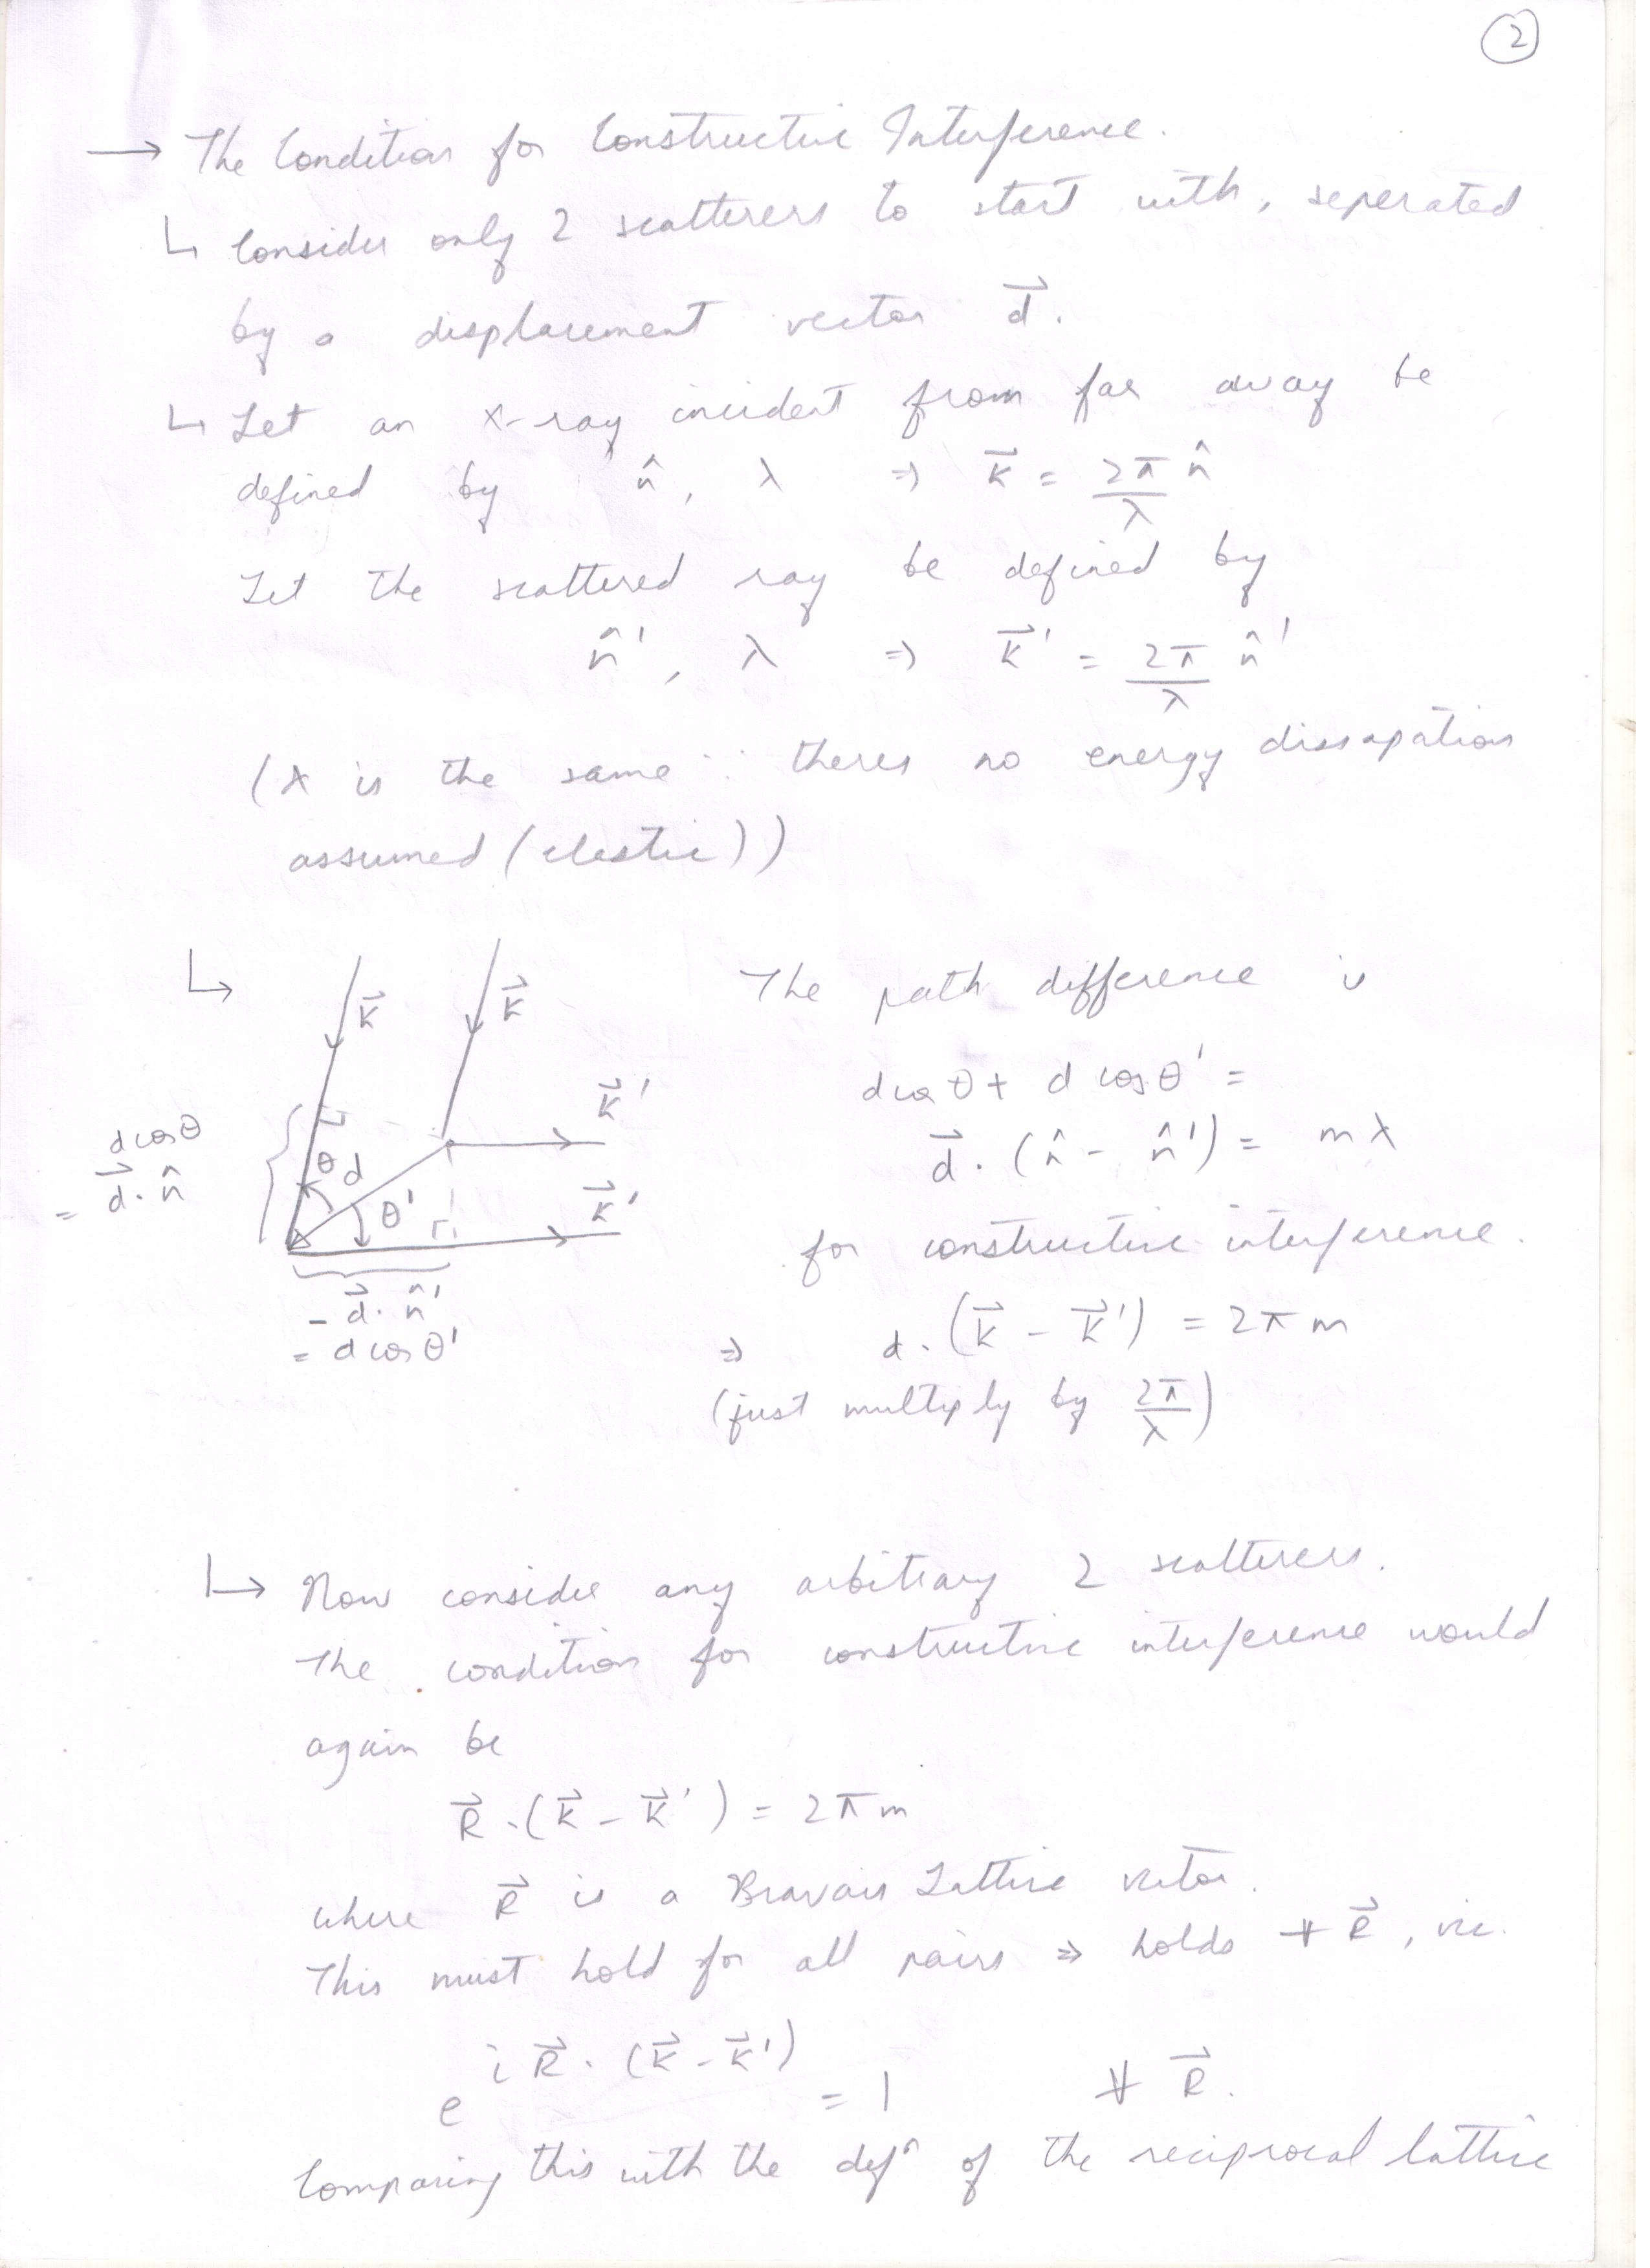 2
→ The Condition for Constructive Interference.
↳ Consider only 2 scatterers to start with, seperated
by a displacement vector d⃗.
↳ Let an x-ray incident from far away be
defined by n̂, λ ⇒ k⃗ = 2π/λ n̂
Let the scattered ray be defined by
n̂', λ ⇒ k⃗' = 2π/λ n̂'
(λ is the same ∵ theres no energy dissapation
assumed (elastic))
↳ The path difference is
k⃗ k⃗
d cosθ + d cosθ' =
k⃗'
d⃗ · (n̂ - n̂') = mλ
d cosθ
= d⃗ · n̂
θ d
θ' k⃗'
for constructive interference.
- d⃗ · n̂'
= d cosθ'
⇒ d · (k⃗ - k⃗') = 2πm
(just multiply by 2π/λ)
↳ Now consider any arbitrary 2 scatterers.
The condition for constructive interference would
again be
R⃗ · (k⃗ - k⃗') = 2πm
where R⃗ is a Bravais Lattice vector.
This must hold for all pairs ⇒ holds ∀ R⃗, viz.
e^{i R⃗ · (k⃗ - k⃗')} = 1 ∀ R⃗.
Comparing this with the defⁿ of the reciprocal lattice